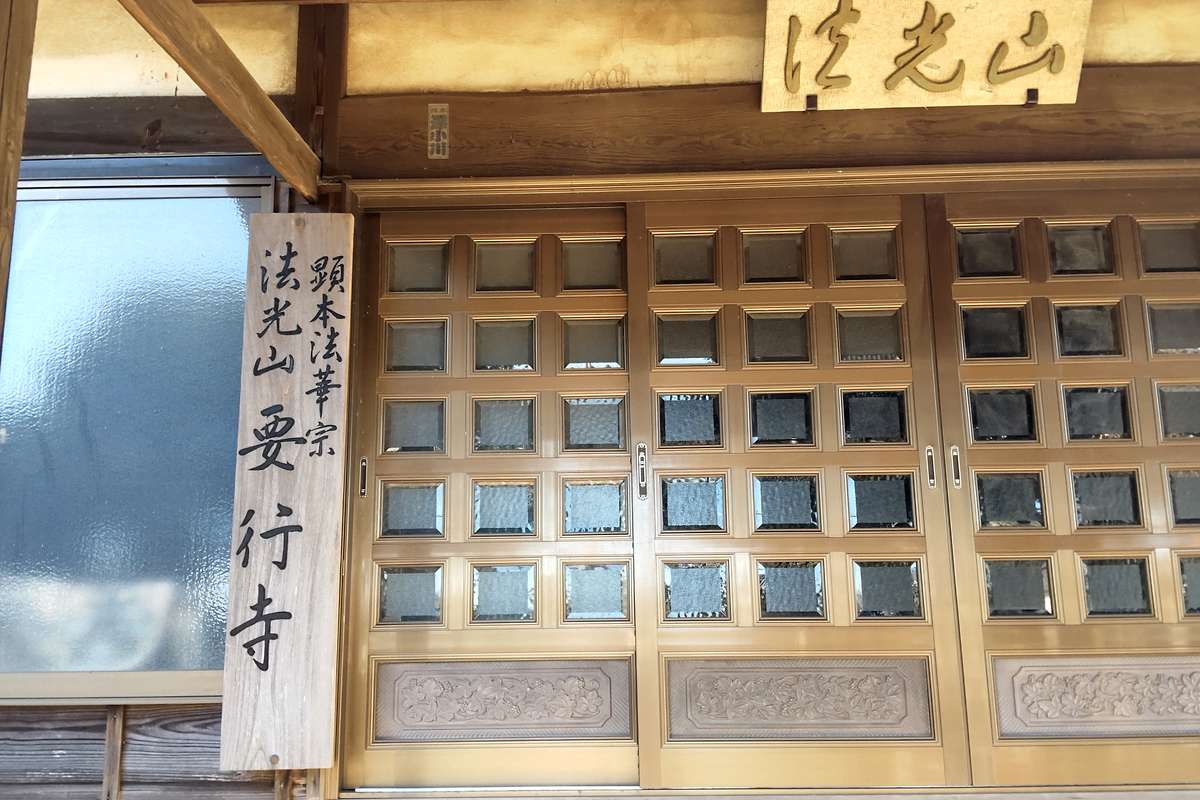 法光山
顕本法華宗
法光山 要行寺
小川